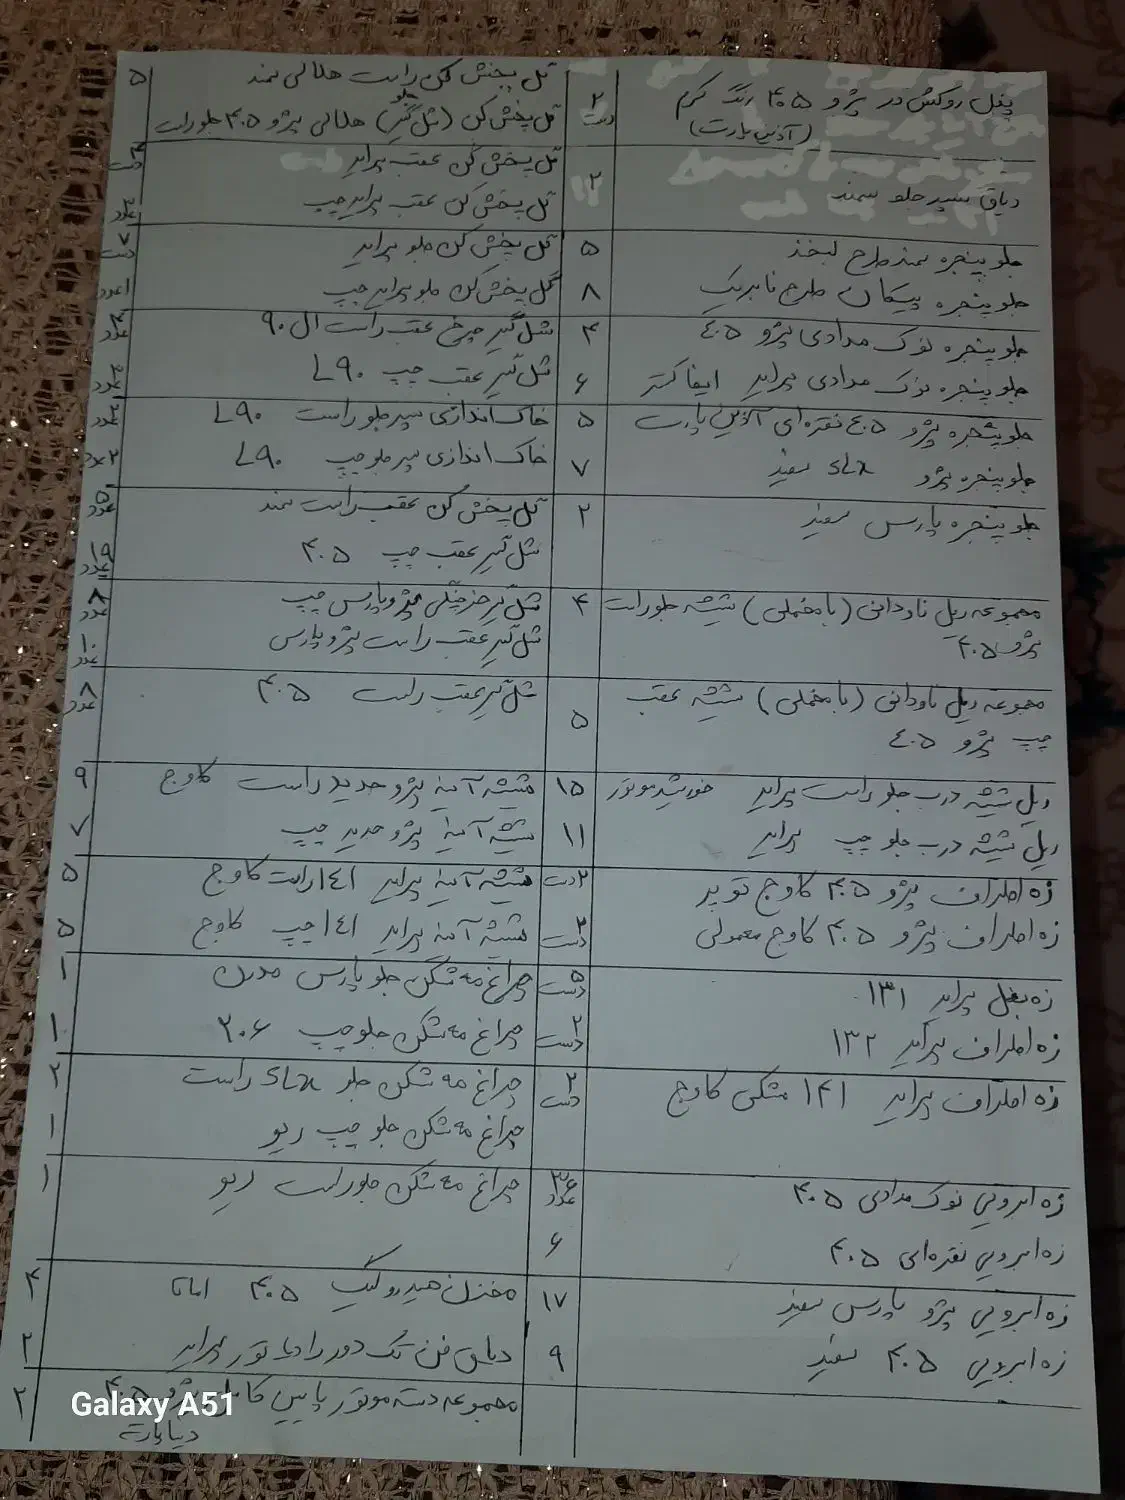 پغل روکش در پژو ۴۰۵ رنگ کرم ۲ دست
(آذین پارت)
دیاق سپر جلو سمند ۲
جلو پنجره سمند طرح لبخند ۵
جلو پنجره پیکان طرح فابریک ۸
جلو پنجره نوک مدادی پژو ۴۰۵ ۴
جلو پنجره نوک مدادی پراید ایفا گستر ۶
جلو پنجره پژو ۴۰۵ نقره‌ای آذین پارت ۵
جلو پنجره پژو slx سفید ۷
جلو پنجره پارس سفید ۲
مجموعه ریل ناودانی (با مخملی) شیشه جلو راست ۴
پژو ۴۰۵
مجموعه ریل ناودانی (با مخملی) شیشه عقب ۵
چپ پژو ۴۰۵
ریل شیشه درب جلو راست پراید خورشید موتور ۱۵
ریل شیشه درب جلو چپ پراید ۱۱
زه اطراف پژو ۴۰۵ کاوج توپر ۲ دست
زه اطراف پژو ۴۰۵ کاوج معمولی ۳ دست
زه بغل پراید ۱۳۱ ۵ دست
زه اطراف پراید ۱۳۲ ۲ دست
زه اطراف پراید ۱۴۱ مشکی کاوج ۲ دست
زه ابرویی نوک مدادی ۴۰۵ ۳۶ عدد
زه ابرویی نقره‌ای ۴۰۵ ۶
زه ابرویی پژو پارس سفید ۱۷
زه ابرویی ۴۰۵ سفید ۹
گل پخش کن راست هلالی سمند ۵
گل پخش کن جلو (شل گیر) هلالی پژو ۴۰۵ جلو راست
گل پخش کن عقب پراید دست
گل پخش کن عقب پراید چپ عدد
گل پخش کن جلو پراید ۷ دست
گل پخش کن جلو پراید چپ ۱ عدد
شل گیر چرخ عقب راست ال ۹۰ عدد
شل گیر عقب چپ L۹۰ عدد
خاک اندازی سپر جلو راست L۹۰ عدد
خاک اندازی سپر جلو چپ L۹۰ ۲ عدد
گل پخش کن عقب راست سمند ۵ عدد
شل گیر عقب چپ ۴۰۵ عدد
شل گیر خرچنگی پژو پارس چپ ۸ عدد
شل گیر عقب راست پژو پارس ۱۰ عدد
شل گیر عقب راست ۴۰۵ ۸ عدد
شیشه آینه پژو جدید راست کاوج ۹
شیشه آینه پژو جدید چپ ۷
شیشه آینه پراید ۱۴۱ راست کاوج ۵
شیشه آینه پراید ۱۴۱ چپ کاوج ۵
چراغ مه شکن جلو پارس مدرن ۱
چراغ مه شکن جلو چپ ۲۰۶ ۱
چراغ مه شکن جلو slx راست ۲
چراغ مه شکن جلو چپ ریو ۱
چراغ مه شکن جلو راست ریو ۱
مخزن هیدرولیک ۴۰۵ اماتا ۴
دیاق فن تک دور رادیاتور پراید ۲
مجموعه دسته موتور پایین کامل پژو ۴۰۵ ۲
دیناپارت
Galaxy A51